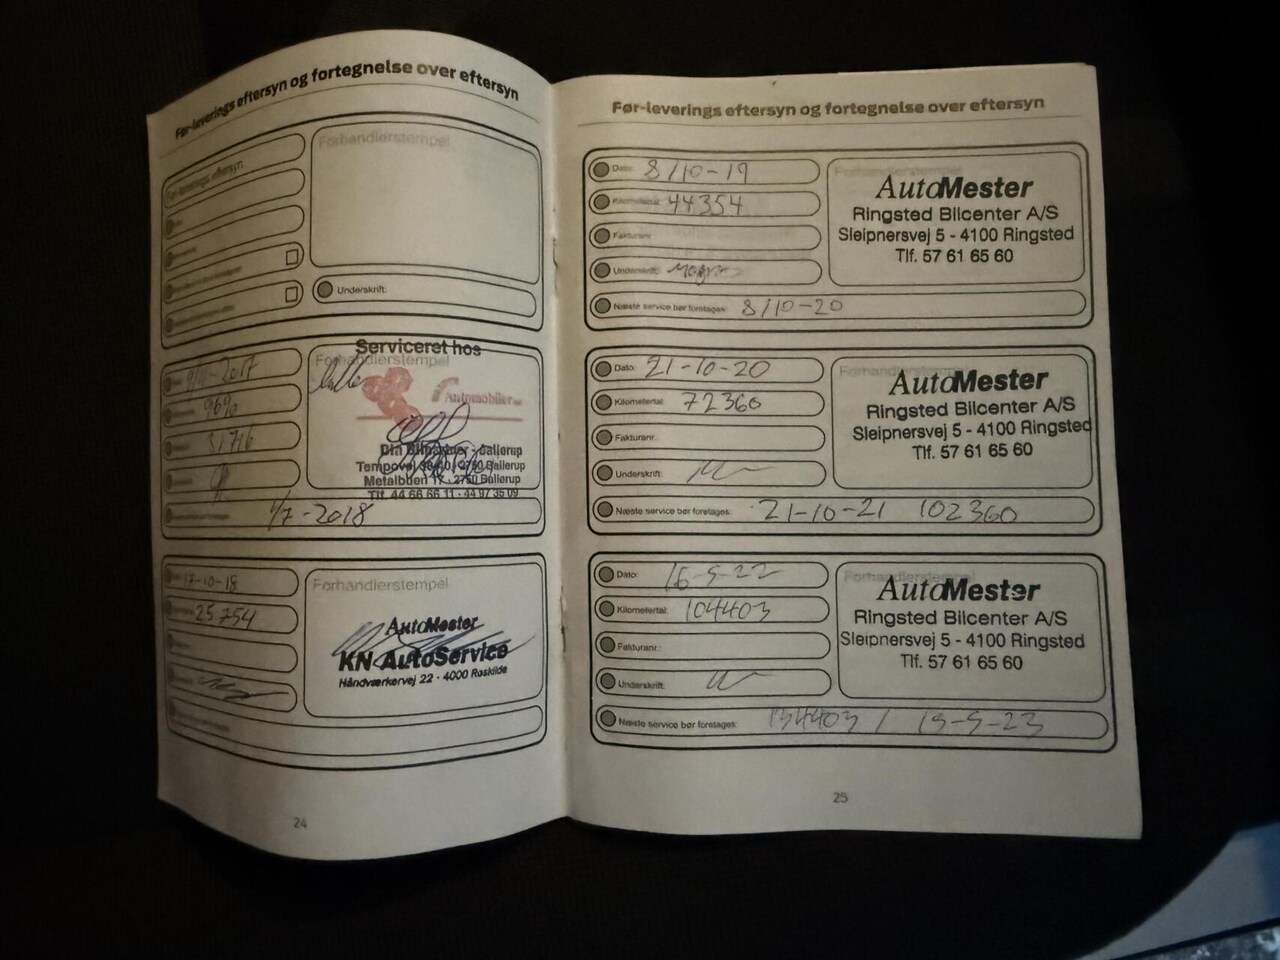 Før-leverings eftersyn og fortegnelse over eftersyn
Før-leverings eftersyn
Forhandlerstempel
Underskrift:
9/11-2017
Forhandlerstempel
Serviceret hos
Automobiler
9690
31716
Din Bilpartner - Ballerup
Tempovej 38-40 · 2750 Ballerup
Metalbuen 17 · 2750 Ballerup
Tlf. 44 66 66 11 - 44 97 35 09
1/7-2018
17-10-18
Forhandlerstempel
25754
AutoMester
KN AutoService
Håndværkervej 22 - 4000 Roskilde
24
Før-leverings eftersyn og fortegnelse over eftersyn
Dato: 8/10-19
Kilometertal: 44354
Fakturanr.:
Underskrift:
Næste service bør foretages: 8/10-20
Forhandlerstempel
AutoMester
Ringsted Bilcenter A/S
Sleipnersvej 5 - 4100 Ringsted
Tlf. 57 61 65 60
Dato: 21-10-20
Kilometertal: 72360
Fakturanr.:
Underskrift:
Næste service bør foretages: 21-10-21 102360
Forhandlerstempel
AutoMester
Ringsted Bilcenter A/S
Sleipnersvej 5 - 4100 Ringsted
Tlf. 57 61 65 60
Dato: 16-5-22
Kilometertal: 104403
Fakturanr.:
Underskrift:
Næste service bør foretages: 134403 / 15-5-23
Forhandlerstempel
AutoMester
Ringsted Bilcenter A/S
Sleipnersvej 5 - 4100 Ringsted
Tlf. 57 61 65 60
25